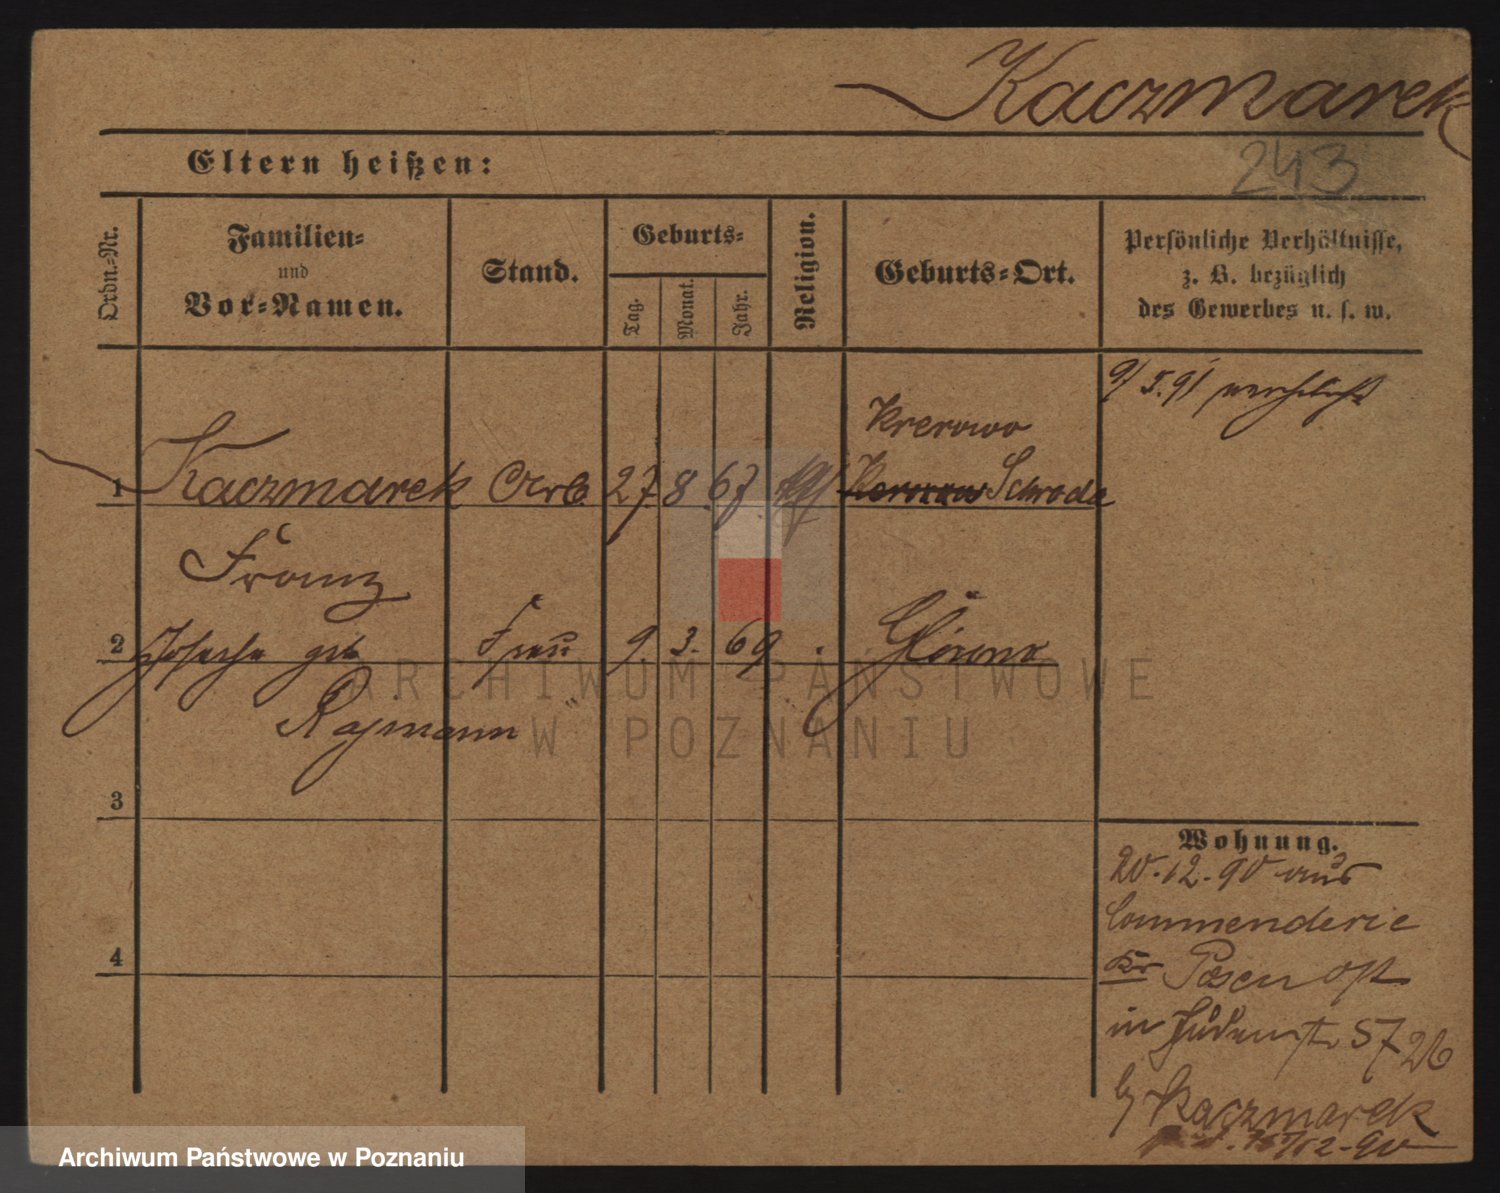 Kaczmarek
Eltern heißen:
243
Ordn.-Nr.
Familien-
und
Vor-Namen.
Stand.
Geburts-
Tag.
Monat.
Jahr.
Religion.
Geburts-Ort.
Persönliche Verhältnisse,
z. B. bezüglich
des Gewerbes u. s. w.
9/5.91 verehelicht
Krerowo
1 Kaczmarek Arb. 27. 8. 67. Schroda
Franz
2 Josepha geb Frau 9. 3. 69
Rajmann
3
4
Wohnung.
20.12.90 aus
Commenderie
Kr Posen Ost
in Judenstr 57
b/ Kaczmarek
ARCHIWUM PAŃSTWOWE
W POZNANIU
Archiwum Państwowe w Poznaniu